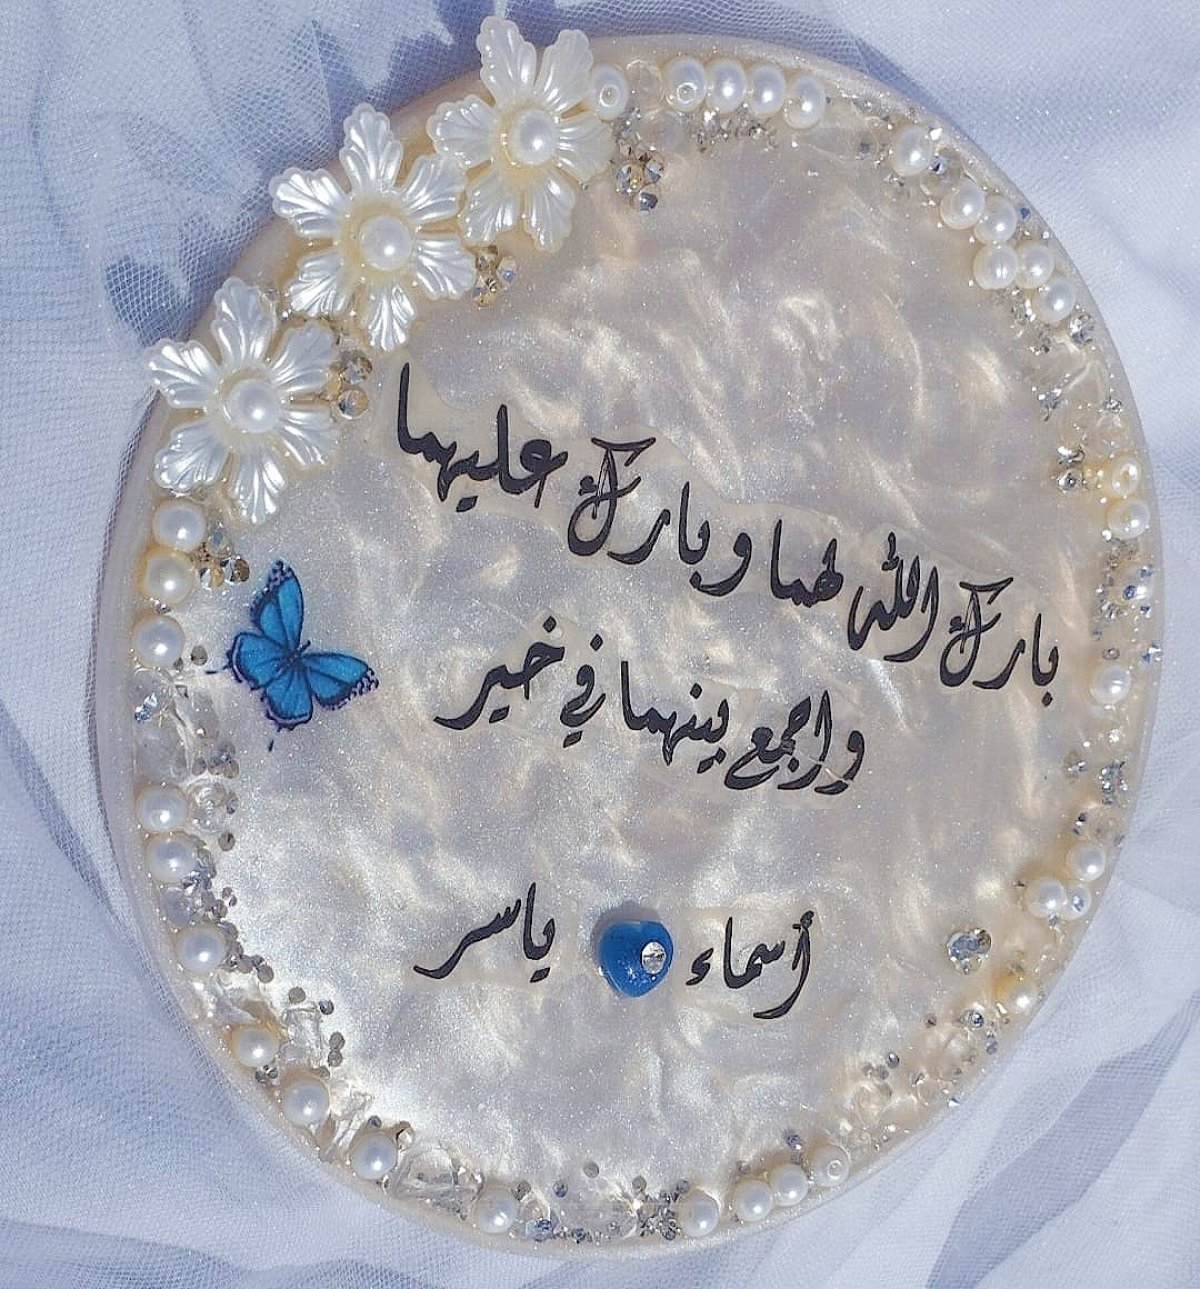 بارك الله لهما وبارك عليهما
واجمع بينهما في خير
أسماء ياسر